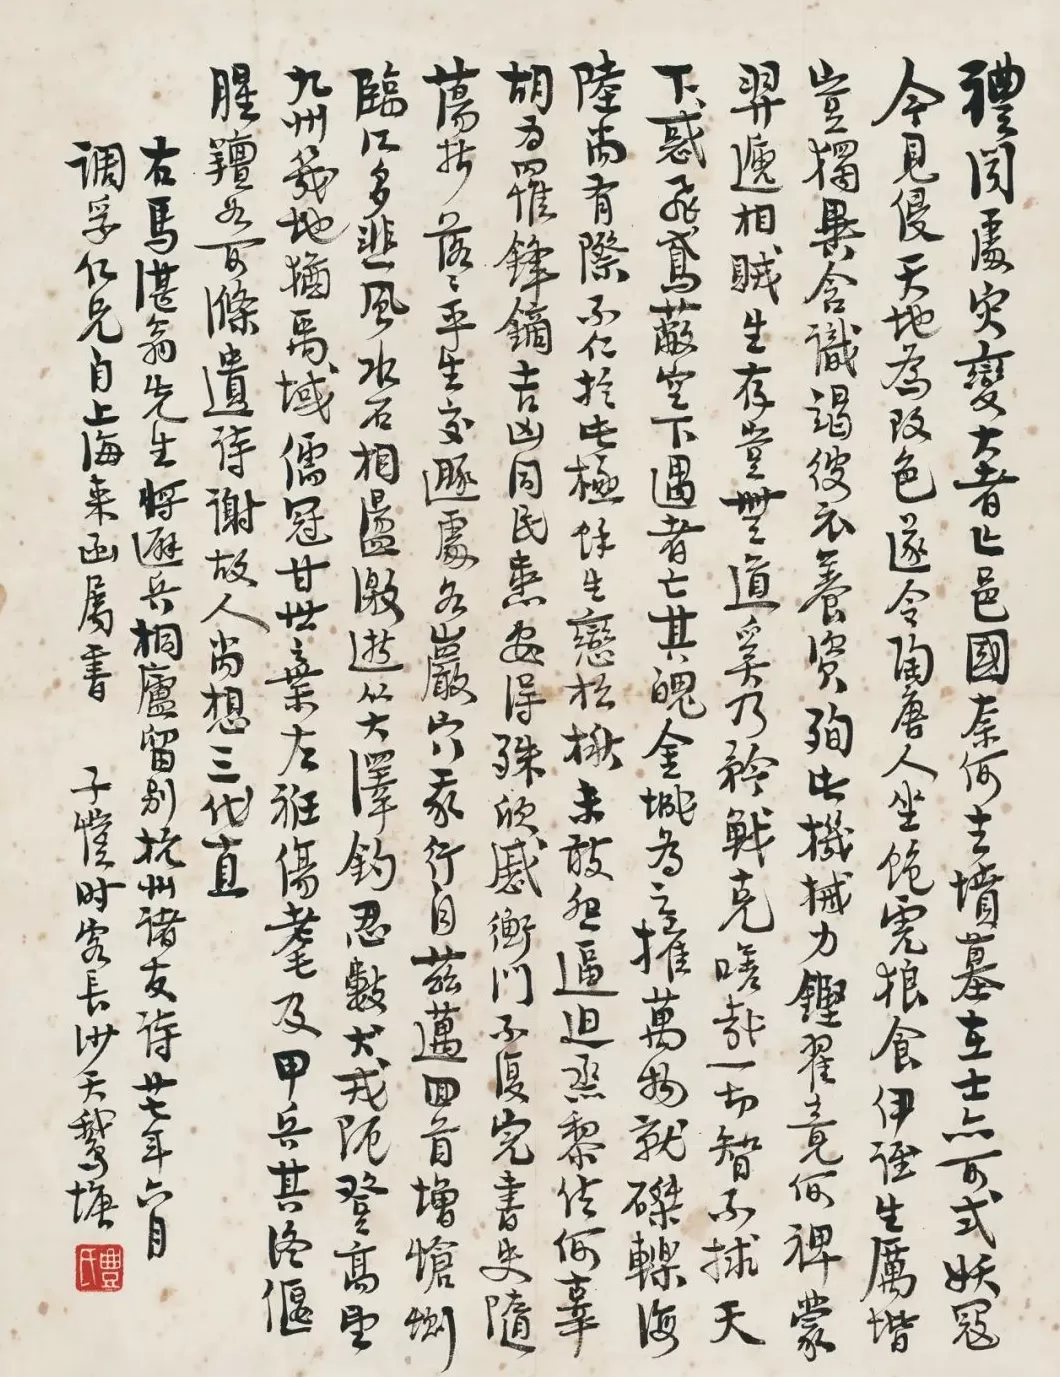 禮聞處灾變大者亡邑國奈何去墳墓在士亦可式妖寇
今見侵天地為改色遂令陶唐人坐飽虎狼食伊誰生厲階
豈獨異含識竭彼衣養資殉此機械力鏗翟竟何裨蒙
羿遞相賊生存豈無道奚乃矜戰克嗟哉一切智不救天
下惑飛鳶蔽空下遇者亡其魄金城為之摧萬物就磔轢海
陸尚有際不仁於此極餘生戀松楸未敢怨逼迫烝黎信何辜
胡為罹鋒鏑吉凶同民患安得殊欣慼衡門不復完書史隨
蕩析落落平生交遯處各巖穴我行自茲邁回首增愴惻
臨江多悲風水石相盪激逝從大澤釣忍數犬戎阨登高望
九州幾地猶禹域儒冠甘世棄左衽傷耄及甲兵其終偃
腥羶如可滌遺詩謝故人尚想三代直
右馬湛翁先生將避兵桐廬留別杭州諸友詩廿七年六月
調孚仁兄自上海來函屬書 子愷時客長沙天鵝塘
豐氏